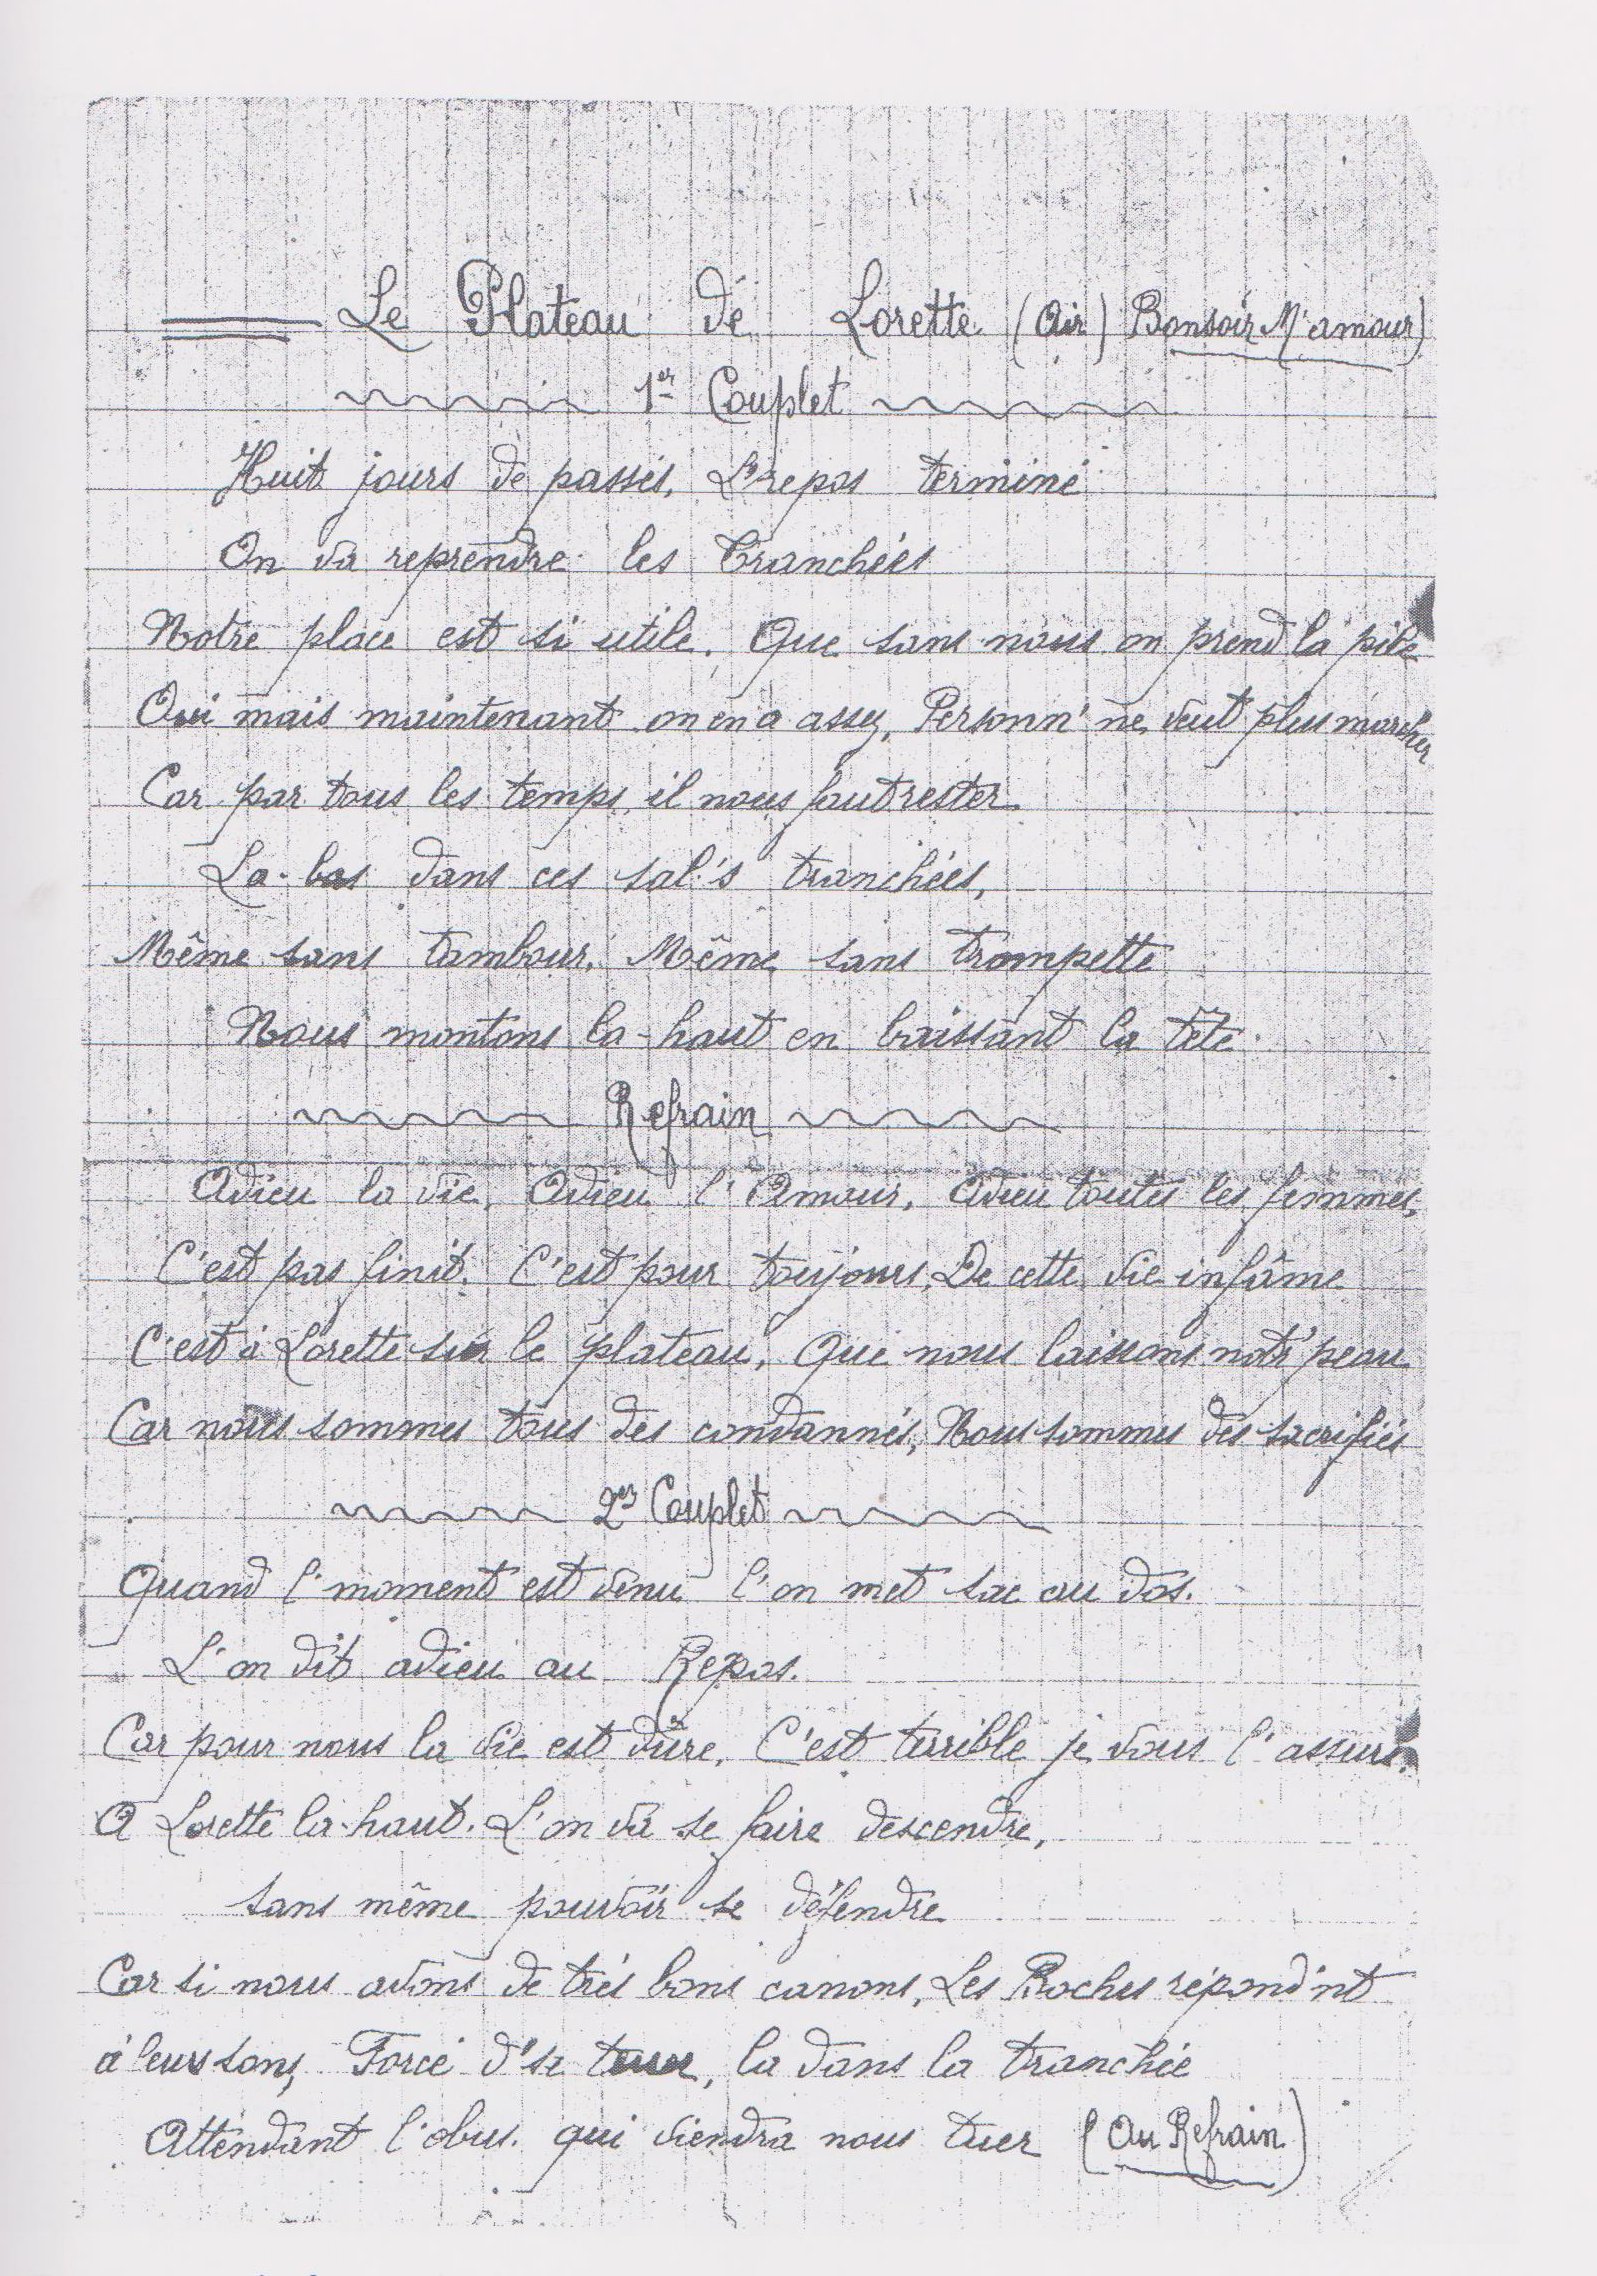 Le Plateau de Lorette (Air) Bonsoir M'amour)
1er Couplet
Huit jours de passés, L'repos terminé
On va reprendre les Tranchées
Notre place est si utile. Que sans nous on prend la pile
Oui mais maintenant on en a assez, Personn' ne veut plus marcher
Car par tous les temps, il nous faut rester
La-bas dans ces sal's tranchées,
Même sans tambour, Même sans trompette
Nous montons la-haut en baissant la tête
Refrain
Adieu la vie, Adieu l'Amour, Adieu toutes les femmes,
C'est pas finit, C'est pour toujours, De cette vie infâme
C'est à Lorette sur le plateau, Que nous laissons notr' peau
Car nous sommes tous des condannés, Nous sommes des sacrifiés
2er Couplet
Quand l'moment est venu l'on met sac au dos.
L'on dit adieu au Repos.
Car pour nous la vie est dure, C'est terrible je vous l'assure.
A Lorette la-haut. L'on va se faire descendre,
sans même pouvoir se défendre
Car si nous avons de très bons canons, Les Boches répond'nt
à leurs sons, Forcé d'se terrer, la dans la tranchée
Attendant l'obus qui viendra nous tuer (Au Refrain)